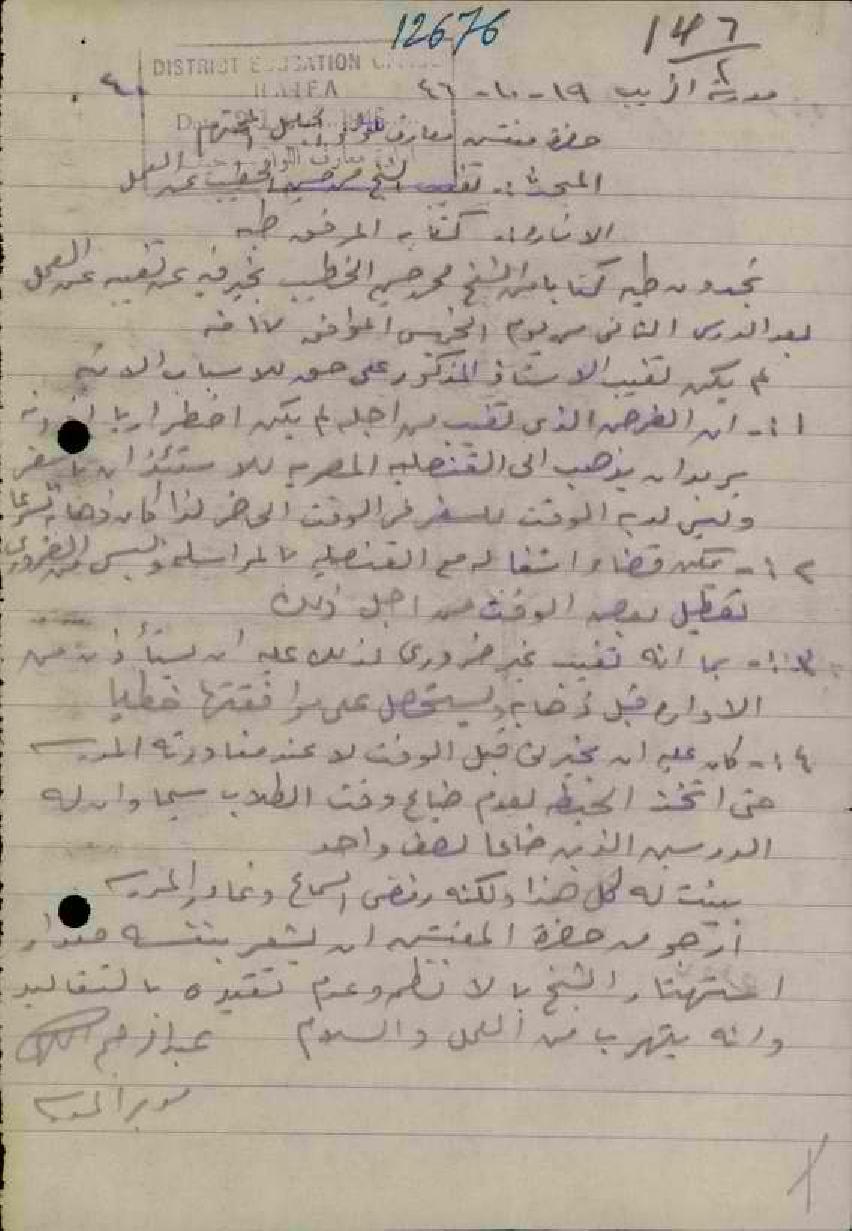 12676
147
2
DISTRICT EDUCATION OFFICE
HAIFA
مدرسة الزيب ١٩-١٠-٤٦
حضرة مفتش معارف لواء الجليل المحترم
المبحث :- تغيب الشيخ محمد حسين الخطيب عن العمل
الاشارة :- كتابه المرفق طيه
تجدون طيه كتابا من الشيخ محمد حسين الخطيب يخبر فيه عن تغيبه عن العمل
بعد الدرس الثاني من يوم الخميس الموافق ١٧ منه
لم يكن تغيب الاستاذ المذكور على حق للاسباب الاتيه
١ :- ان الغرض الذي تغيب من اجله لم يكن اضطراريا
يريد ان يذهب الى القنصليه المصريه للاستئذان بالسفر
وليس لديه الوقت للسفر في الوقت الحاضر لذا كان ذهابه
٢ :- يمكن قضاء اشغاله مع القنصليه بالمراسله وليس من الضروري
تعطيل بعض الوقت من اجل ذلك
٣ :- بما انه تغيب غير ضروري لذلك عليه ان يستأذن من
الاداره قبل ذهابه ويستحصل على موافقتها خطيا
٤ :- كان عليه ان يخبرني قبل الوقت لا عند مغادرته المدرسه
حتى اتخذ الحيطه لعدم ضياع وقت الطلاب سيما وان له
الدرسين الذين ضاعا لصف واحد
بينت له كل هذا ولكنه رفض السماع وغادر المدرسه
أرجو من حضرة المفتش ان يشعر بنفسه مقدار
استهتار الشيخ بالانظمه وعدم تقيده بالتقاليد
وانه يتهرب من العمل والسلام
مدير المدرسه